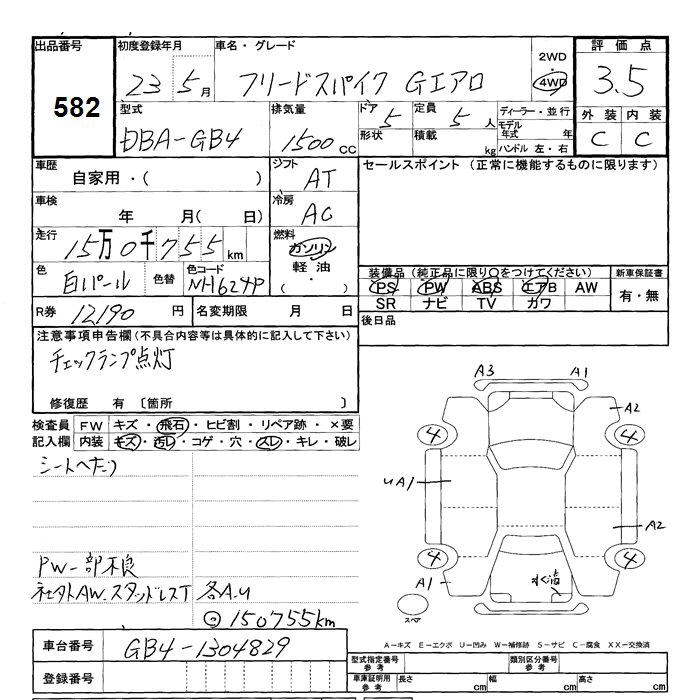 出品番号 582
初度登録年月 23 5月
車名・グレード フリードスパイク Gエアロ
2WD 4WD
評価点 3.5
外装 内装
C C
型式 DBA-GB4
排気量 1500 cc
ドア 5 定員 5 人
形状 積載 kg
ディーラー・並行
モデル年式 年
ハンドル 左・右
車歴 自家用・( )
シフト AT
セールスポイント (正常に機能するものに限ります)
車検 年 月( 日)
冷房 AC
走行 15万0千755km
燃料 ガソリン 軽油 ( ・ )
色 白パール 色替 色コード NH624P
装備品(純正品に限り○をつけてください)
PS PW ABS エアB AW
SR ナビ TV カワ
新車保証書 有・無
R券 12190 円 名変期限 月 日
後日品
注意事項申告欄(不具合内容等は具体的に記入して下さい)
チェックランプ点灯
修復歴 有 〔箇所 〕
検査員記入欄
FW キズ・飛石・ヒビ割・リペア跡・×要
内装 キズ・汚レ・コゲ・穴・スレ・キレ・破レ
シートヘたり
PW一部不良
社外AW.スタッドレスT 各A.U
◎150755km
A3 A1
A2
4 4
UA1
A2
4 4
A1
スペア
A-キズ E-エクボ U-凹み W-補修跡 S-サビ C-腐食 XX-交換済
車台番号 GB4-1304829
登録番号
型式指定番号 参考 類別区分番号 参考
車庫証明用 参考 長さ cm 幅 cm 高さ cm